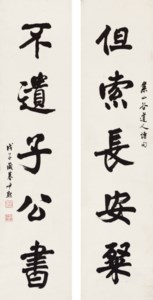 集山谷道人詩句
但索長安粲
不遺子公書
戊子歲暮